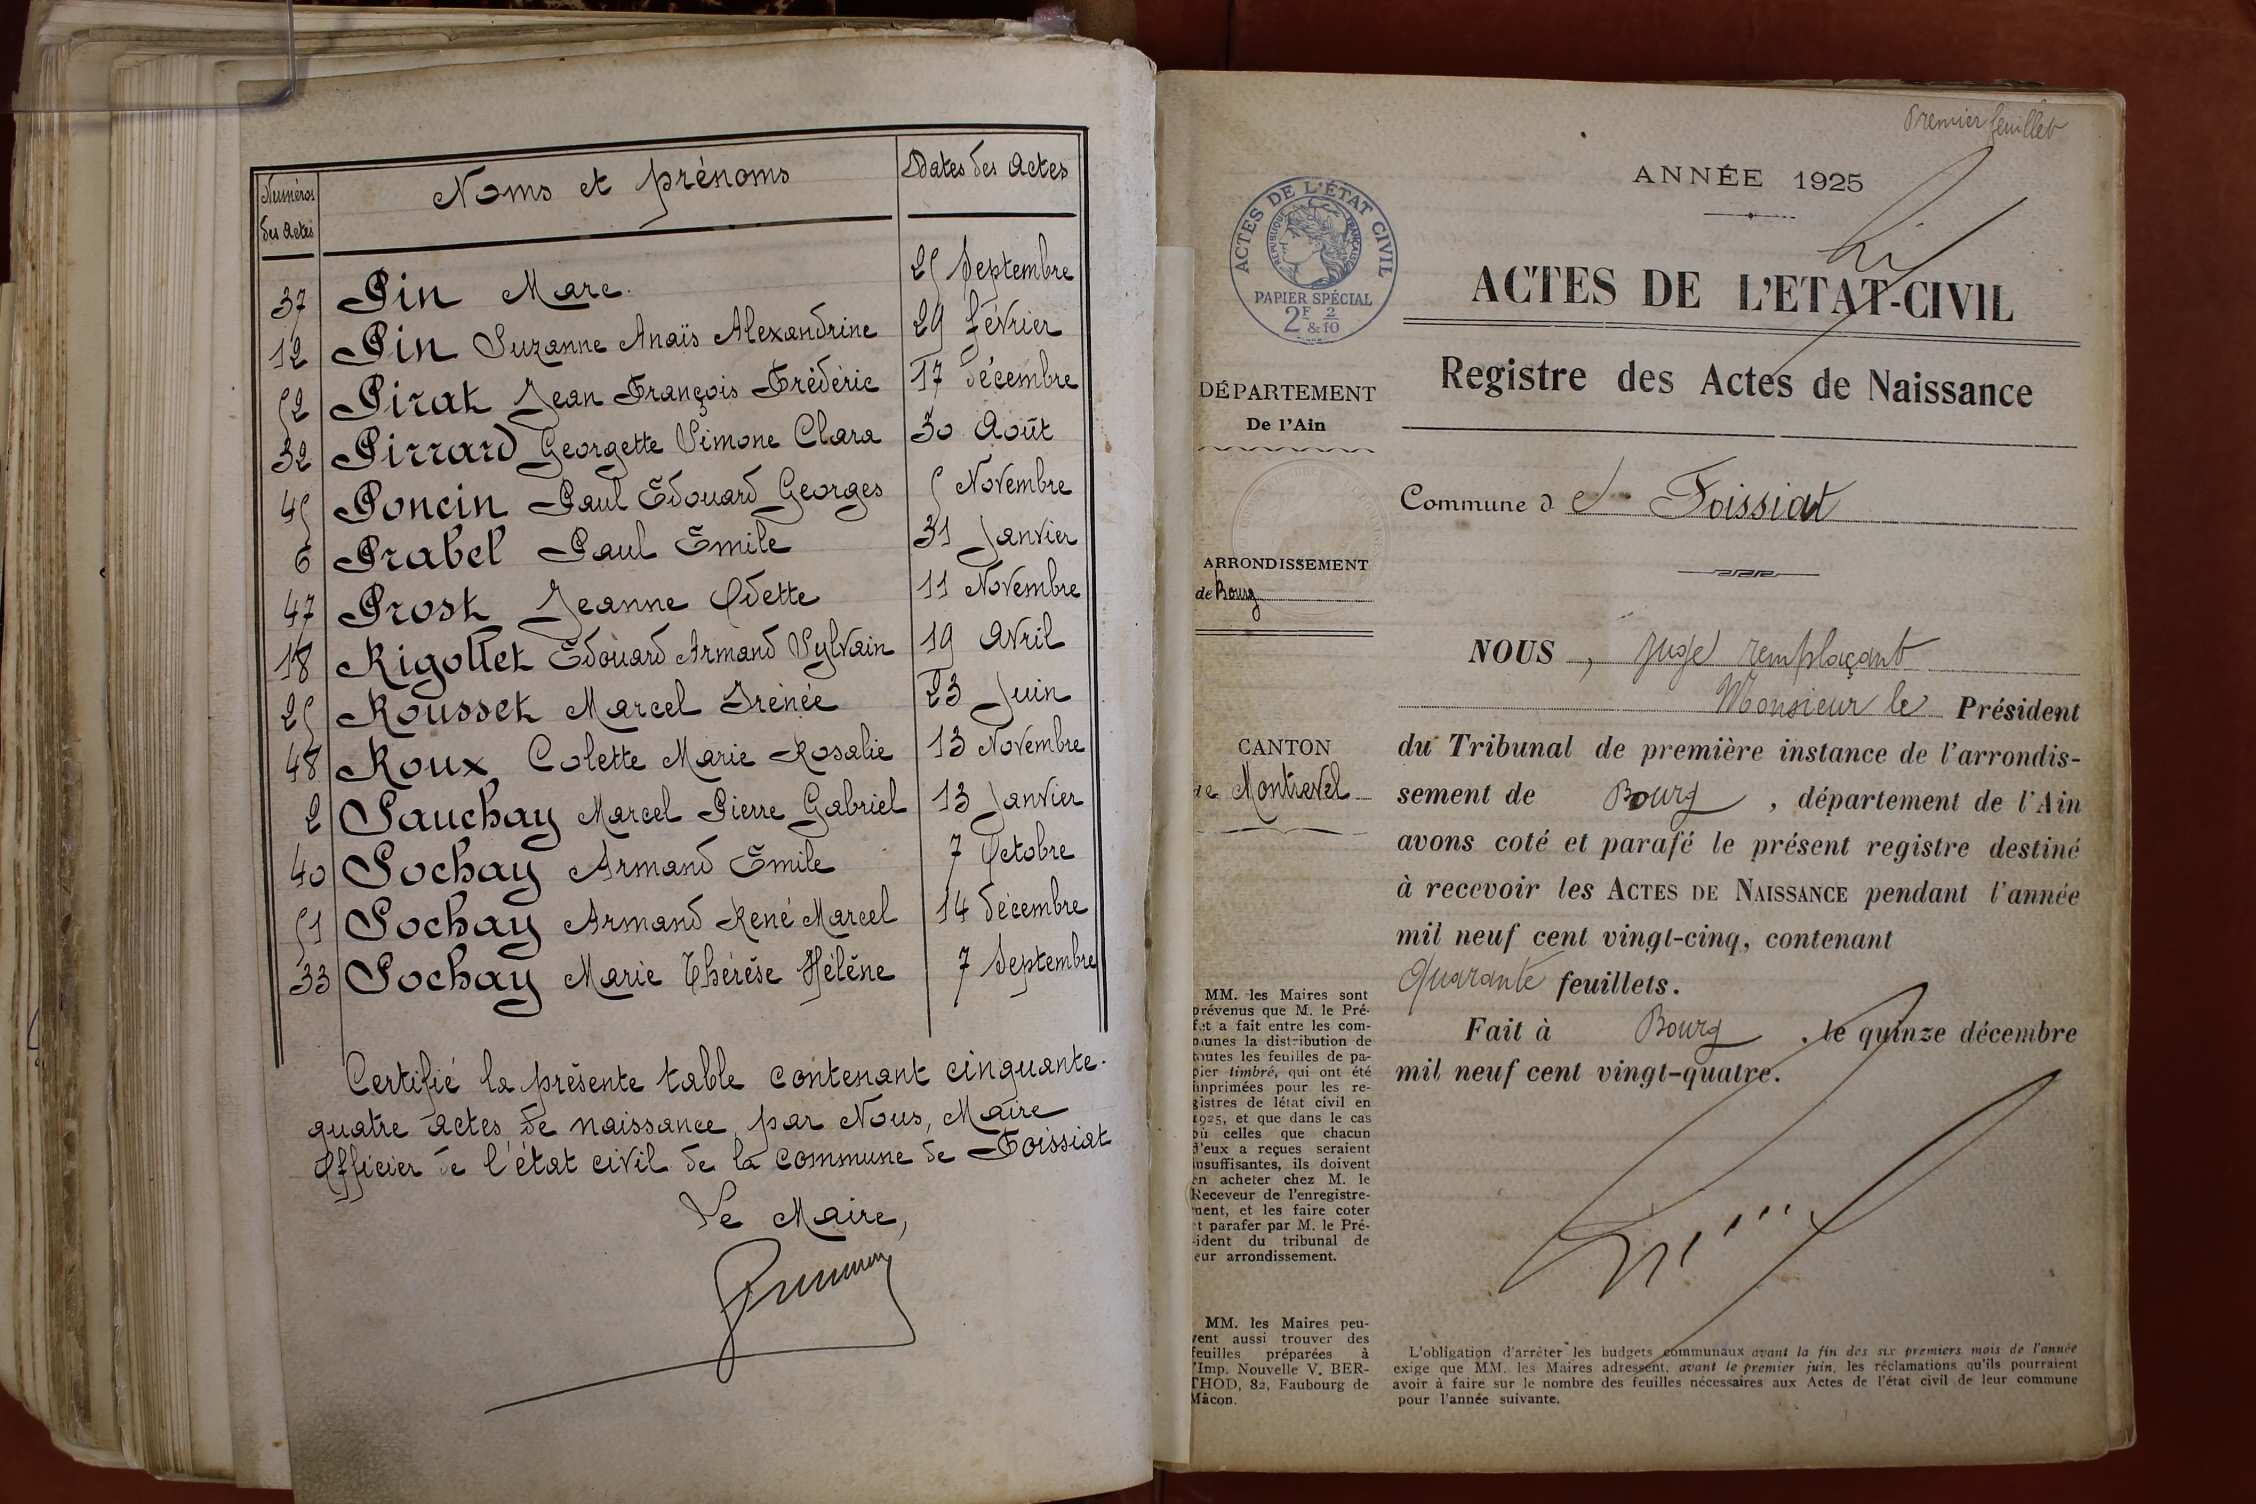 Numéros
des Actes
Noms et prénoms
Dates des Actes
37 Pin Marc. 25 Septembre
12 Pin Suzanne Anaïs Alexandrine 29 février
52 Pirat Jean François Frédéric 17 décembre
32 Pirrard Georgette Simone Clara 30 Août
45 Poncin Paul Edouard Georges 5 Novembre
6 Prabel Paul Emile 31 Janvier
47 Prost Jeanne Odette 11 Novembre
18 Rigollet Edouard Armand Sylvain 19 Avril
25 Rousset Marcel Irénée 23 Juin
48 Roux Colette Marie Rosalie 13 Novembre
2 Sauchay Marcel Pierre Gabriel 13 Janvier
40 Sochay Armand Emile 7 Octobre
51 Sochay Armand René Marcel 14 décembre
33 Sochay Marie Thérèse Hélène 7 Septembre
Certifié la présente table contenant cinquante-
quatre actes de naissance par Nous, Maire
Officier de l'état civil de la commune de Foissiat
Le Maire,
Premier feuillet
ANNÉE 1925
ACTES DE L'ÉTAT CIVIL
RÉPUBLIQUE FRANÇAISE
PAPIER SPÉCIAL
2F 2
& 10
ACTES DE L'ETAT-CIVIL
Registre des Actes de Naissance
DÉPARTEMENT
De l'Ain
Commune d e Foissiat
ARRONDISSEMENT
de Bourg
CANTON
de Montrevel
NOUS, juge remplaçant
Monsieur le Président
du Tribunal de première instance de l'arrondis-
sement de Bourg, département de l'Ain
avons coté et parafé le présent registre destiné
à recevoir les ACTES DE NAISSANCE pendant l'année
mil neuf cent vingt-cinq, contenant
Quarante feuillets.
Fait à Bourg, le quinze décembre
mil neuf cent vingt-quatre.
MM. les Maires sont
prévenus que M. le Pré-
fet a fait entre les com-
munes la distribution de
toutes les feuilles de pa-
pier timbré, qui ont été
imprimées pour les re-
gistres de létat civil en
1925, et que dans le cas
où celles que chacun
d'eux a reçues seraient
insuffisantes, ils doivent
en acheter chez M. le
Receveur de l'enregistre-
ment, et les faire coter
et parafer par M. le Pré-
sident du tribunal de
leur arrondissement.
MM. les Maires peu-
vent aussi trouver des
feuilles préparées à
l'Imp. Nouvelle V. BER-
THOD, 82, Faubourg de
Mâcon.
L'obligation d'arrêter les budgets communaux avant la fin des six premiers mois de l'année
exige que MM. les Maires adressent, avant le premier juin, les réclamations qu'ils pourraient
avoir à faire sur le nombre des feuilles nécessaires aux Actes de l'état civil de leur commune
pour l'année suivante.